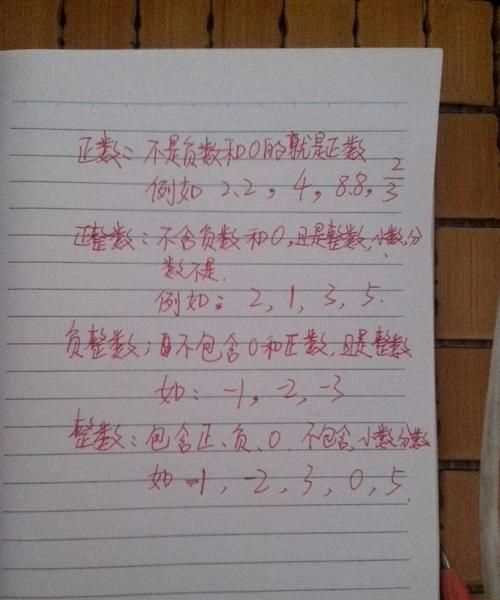 正数：不是负数和0的就是正数
例如 2.2，4，8.8，2/3
正整数：不含负数和0，且是整数，小数，分
数不是．
例如：2，1，3，5．
负整数；不包含0和正数，且是整数
如：-1，-2，-3
整数：包含正、负、0．不包含，小数分数
如 -1，-2，3，0，5．